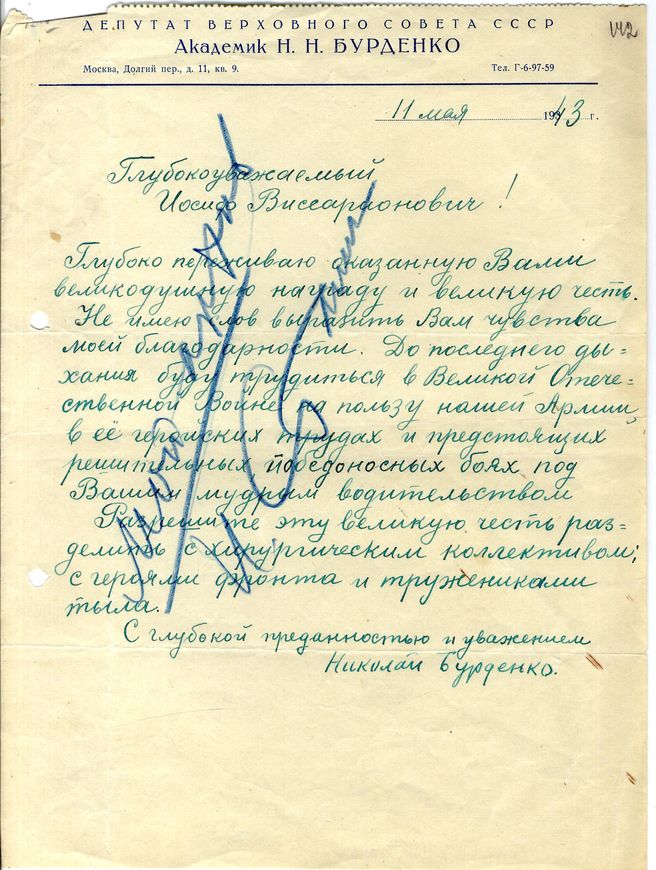 ДЕПУТАТ ВЕРХОВНОГО СОВЕТА СССР
Академик Н. Н. БУРДЕНКО
Москва, Долгий пер., д. 11, кв. 9.
Тел. Г-6-97-59
142
11 мая 1943 г.
Глубокоуважаемый
Иосиф Виссарионович!
Глубоко переживаю оказанную Вами
великодушную награду и великую честь.
Не имею слов выразить Вам чувства
моей благодарности. До последнего ды=
хания буду трудиться в Великой Отече=
ственной Войне на пользу нашей Армии,
в её геройских трудах и предстоящих
решительных победоносных боях под
Вашим мудрым водительством
Разрешите эту великую честь раз=
делить с хирургическим коллективом;
с героями фронта и тружениками
тыла.
С глубокой преданностью и уважением
Николай Бурденко.
Мой архив
И. Сталин